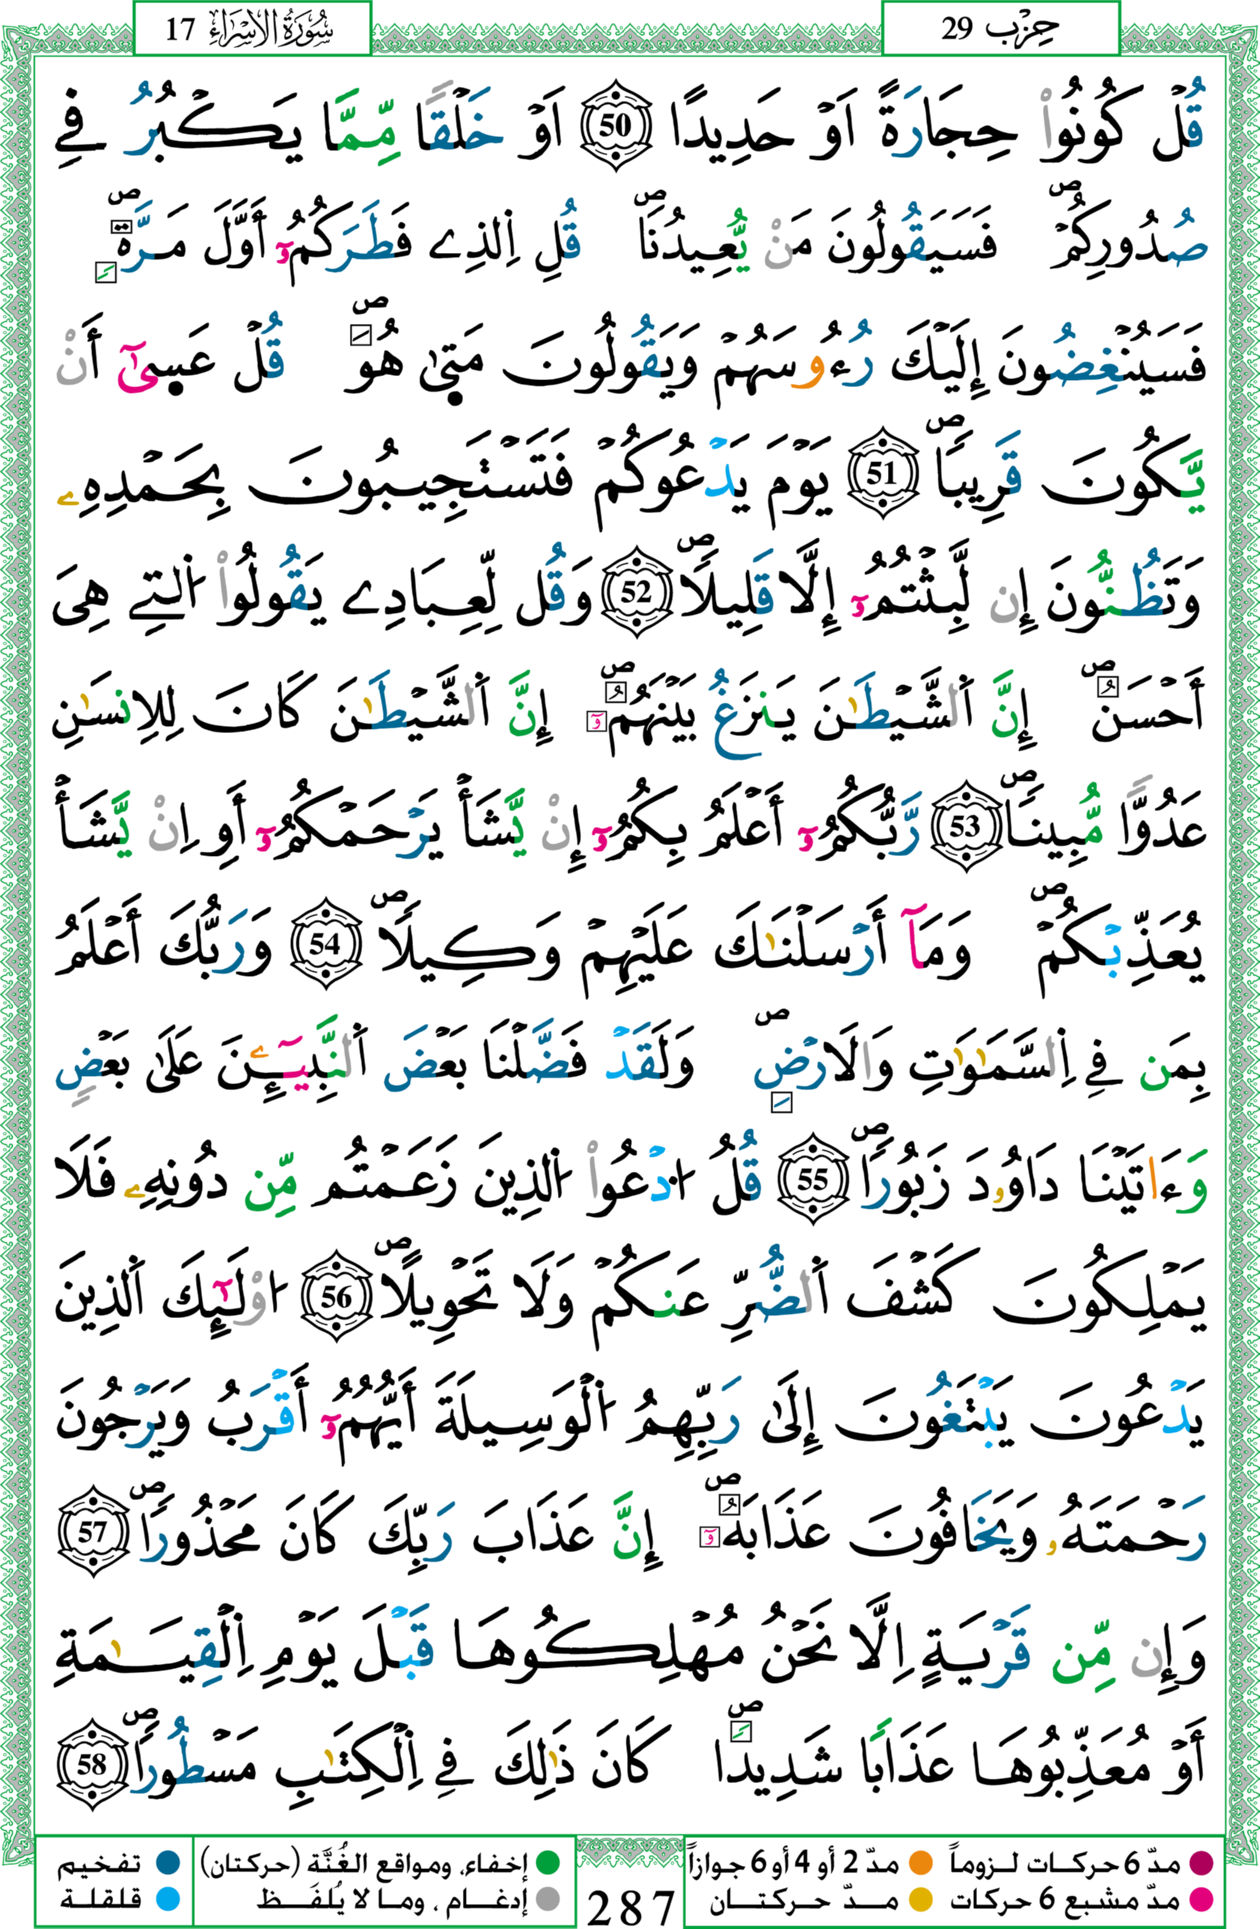 سُورَةُ الِاسْرَاءِ 17
حِزْب 29
قُلْ كُونُواْ حِجَارَةً اَوْ حَدِيدًا 50 اَوْ خَلْقًا مِّمَّا يَكْبُرُ فِے
صُدُورِكُمْۖ فَسَيَقُولُونَ مَنْ يُّعِيدُنَاۖ قُلِ اِلذِے فَطَرَكُمُۥٓ أَوَّلَ مَرَّةٖۖ
فَسَيُنْغِضُونَ إِلَيْكَ رُءُوسَهُمْ وَيَقُولُونَ مَت۪ىٰ هُوَۖ قُلْ عَس۪ىٰٓ أَنْ
يَّكُونَ قَرِيباٗۖ 51 يَوْمَ يَدْعُوكُمْ فَتَسْتَجِيبُونَ بِحَمْدِهِۦ
وَتَظُنُّونَ إِن لَّبِثْتُمُۥٓ إِلَّا قَلِيلاٗۖ 52 وَقُل لِّعِبَادِے يَقُولُواْ اُلتِے هِيَ
أَحْسَنُۖ إِنَّ اَلشَّيْطَٰنَ يَنزَغُ بَيْنَهُمُۥٓۖ إِنَّ اَلشَّيْطَٰنَ كَانَ لِلِانسَٰنِ
عَدُوًّا مُّبِيناٗۖ 53 رَّبُّكُمُۥٓ أَعْلَمُ بِكُمُۥٓ إِنْ يَّشَأْ يَرْحَمْكُمُۥٓ أَوِ اِنْ يَّشَأْ
يُعَذِّبْكُمْۖ وَمَآ أَرْسَلْنَٰكَ عَلَيْهِمْ وَكِيلاٗۖ 54 وَرَبُّكَ أَعْلَمُ
بِمَن فِے اِلسَّمَٰوَٰتِ وَالَارْضِۖ وَلَقَدْ فَضَّلْنَا بَعْضَ اَلنَّبِيٓـِٕۧنَ عَلَىٰ بَعْضٍ
وَءَاتَيْنَا دَاوُۥدَ زَبُوراٗۖ 55 قُلُ اُدْعُواْ اُلذِينَ زَعَمْتُم مِّن دُونِهِۦ فَلَا
يَمْلِكُونَ كَشْفَ اَلضُّرِّ عَنكُمْ وَلَا تَحْوِيلاًۖ 56 اُوْلَٰٓئِكَ اَلذِينَ
يَدْعُونَ يَبْتَغُونَ إِلَىٰ رَبِّهِمُ اُلْوَسِيلَةَ أَيُّهُمُۥٓ أَقْرَبُ وَيَرْجُونَ
رَحْمَتَهُۥ وَيَخَافُونَ عَذَابَهُۥٓۖ إِنَّ عَذَابَ رَبِّكَ كَانَ مَحْذُوراٗۖ 57
وَإِن مِّن قَرْيَةٍ اِلَّا نَحْنُ مُهْلِكُوهَا قَبْلَ يَوْمِ اِلْقِيَٰمَةِ
أَوْ مُعَذِّبُوهَا عَذَابًا شَدِيداٗۖ كَانَ ذَٰلِكَ فِے اِلْكِتَٰبِ مَسْطُوراٗۖ 58
مدّ 6 حركات لزوماً مدّ 2 أو 4 أو 6 جوازاً
مدّ مشبع 6 حركات مدّ حركتان
287
إخفاء، ومواقع الغُنَّة (حركتان) تفخيم
إدغام ، وما لا يُلفَظ قلقلة